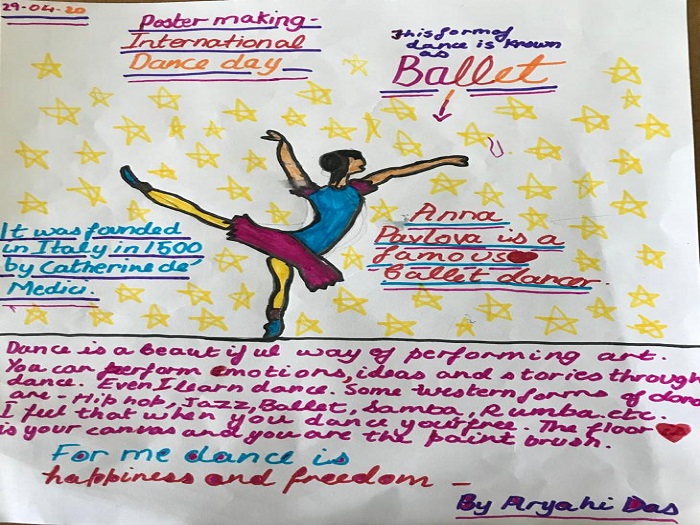 29-04-20
Poster making-
International
Dance day
This form of
dance is known
as
Ballet
It was founded
in Italy in 1500
by Catherine de'
Medici.
Anna
Pavlova is a
famous
ballet dancer.
Dance is a beautiful way of performing art.
You can perform emotions, ideas and stories through
dance. Even I learn dance. Some western forms of danc
are - Hip hop, Jazz, Ballet, Samba, Rumba. etc.
I feel that when you dance your free. The floor
is your canvas and you are the paint brush.
For me dance is
happiness and freedom -
By Aryahi Das